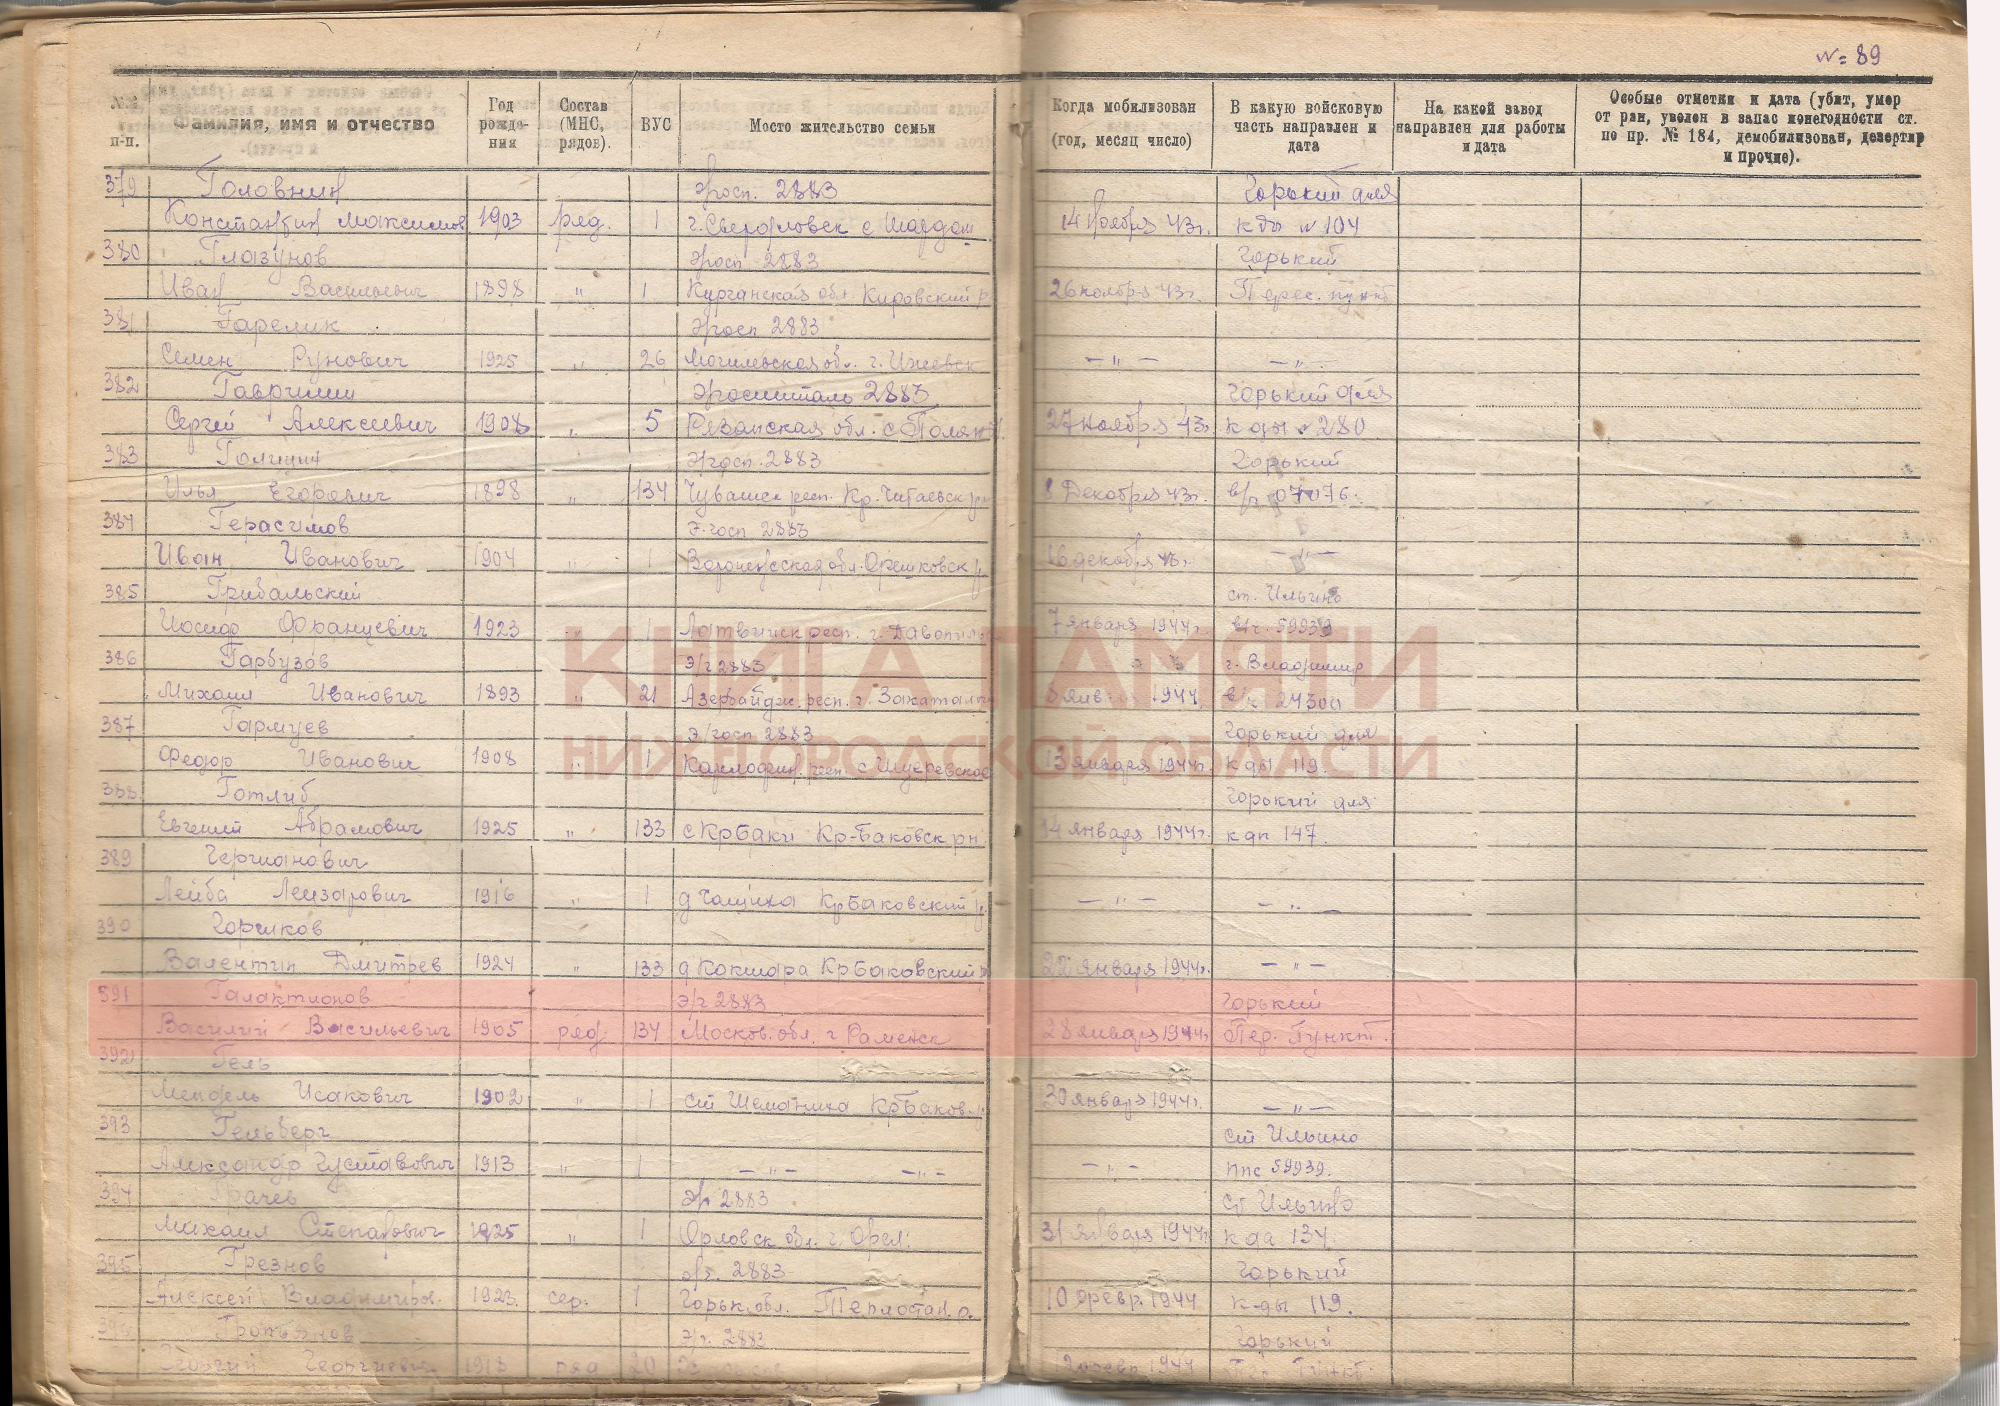 № 89
№№ п-п.
Фамилия, имя и отчество
Год рожде-ния
Состав (МНС, рядов).
ВУС
Место жительство семьи
Когда мобилизован (год, месяц число)
В какую войсковую часть направлен и дата
На какой завод направлен для работы и дата
Особые отметки и дата (убит, умер от ран, уволен в запас по негодности ст. по пр. № 184, демобилизован, дезертир и прочие).
379 Головнин Эгосп. 2883 Горький для
Константин Максимов 1903 ряд. 1 г. Свердловск с 14 ноября 43г. кды № 104
380 Глазунов Эгосп 2883 Горький
Иван Васильевич 1898 " 1 Курганская обл. Кировский р 26 ноября 43г. Перес. пункт
381 Гарелик Эгосп 2883
Семен Рунович 1925 " 26 Могилевская обл. г. Ижевск — " — — " —
382 Гаврилин Эгоспиталь 2883 Горький для
Сергей Алексеевич 1908 " 5 Рязанская обл. с 27 ноября 43г. к ды № 280
383 Голицин Эгосп. 2883 Горький
Илья Егорович 1898 " 134 Чувашск респ. Кр. 8 Декабря 43г. в/ч 07076.
384 Герасимов Э.госп 2883
Иван Иванович 1904 " 1 Воронежская обл. 16 декабря 43г. — " —
385 Грибальский ст. Ильино
Иосиф Францевич 1923 " 1 Латвийск респ. г. 7 января 1944г. в/ч. 59939
386 Гарбузов Э/г 2883 г. Владимир
Михаил Иванович 1893 " 21 Азербайдж. респ. г. Закаталы 8 янв 1944 в/ч 24300
387 Гармуев Э/госп 2883 Горький для
Федор Иванович 1908 " 1 респ с 13 января 1944г. к ды 119.
388 Готлиб Горький для
Евгений Абрамович 1925 " 133 с КрБаки Кр-Баковск рн. 14 января 1944г. к дп 147.
389 Герчианович
Лейба Лейзарович 1916 " 1 д КрБаковский р. — " — — " —
390 Горшков
Валентин Дмитрев 1924 " 133 д Кокшара КрБаковский 22 января 1944г. — " —
391 Галактионов Э/г 2883 Горький
Василий Васильевич 1905 ряд. 134 Москов. обл. г Раменск 28 января 1944г. Пер. Пункт.
392 Гель
Мендель Исакович 1902 " 1 ст Шеманиха КрБаков. 30 января 1944г. — " —
393 Гельберг ст Ильино
Александр Густавович 1913 " 1 — " — — " — — " — ппс 59939.
394 Грачев Э/г 2883 Ст Ильино
Михаил Степанович 1925 " 1 Орловск обл. г. Орел. 31 января 1944г. к да 134.
395 Грезнов 2883 Горький
Алексей Владимиров. 1923 сер. 1 Горьк. обл. Теплостан. р. 10 февр. 1944 к-ды 119.
Э/г. 2883 Горький
Георгий Георгиевич 1913 ряд 20 12 февр 1944
КНИГА ПАМЯТИ
НИЖЕГОРОДСКОЙ ОБЛАСТИ